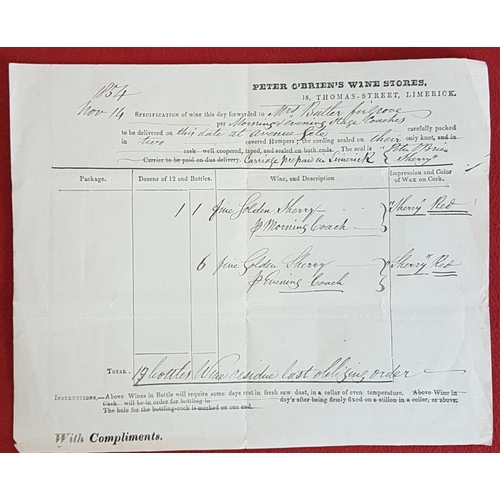 PETER O'BRIEN'S WINE STORES,
1854
18, THOMAS-STREET, LIMERICK.
Nov 14 SPECIFICATION of wine this day forwarded to Mrs Butler
per Morning & Evening Stage Coaches
to be delivered on this date at Avenue Gate carefully packed
in two covered Hampers, the cording sealed on their only knot, and in
cask well coopered, taped, and sealed on both ends. The seal is "Peter O'Brien
Carrier to be paid on due delivery. Carriage prepaid in Limerick Sherry"
Package. Dozens of 12 and Bottles. Wine, and Description Impression and Color of Wax on Cork.
1 1 fine Golden Sherry "Sherry" Red
p Morning Coach
6 fine Golden Sherry "Sherry" Red
p Evening Coach
TOTAL. 19 bottles Wine residue last obliging order
INSTRUCTIONS,—Above Wines in Bottle will require some days rest in fresh saw dust, in a cellar of even temperature. Above Wine in
Cask will be in order for bottling in day's after being firmly fixed on a stillion in a cellar, as above.
The hole for the bottling-cock is marked on one end.
With Compliments.